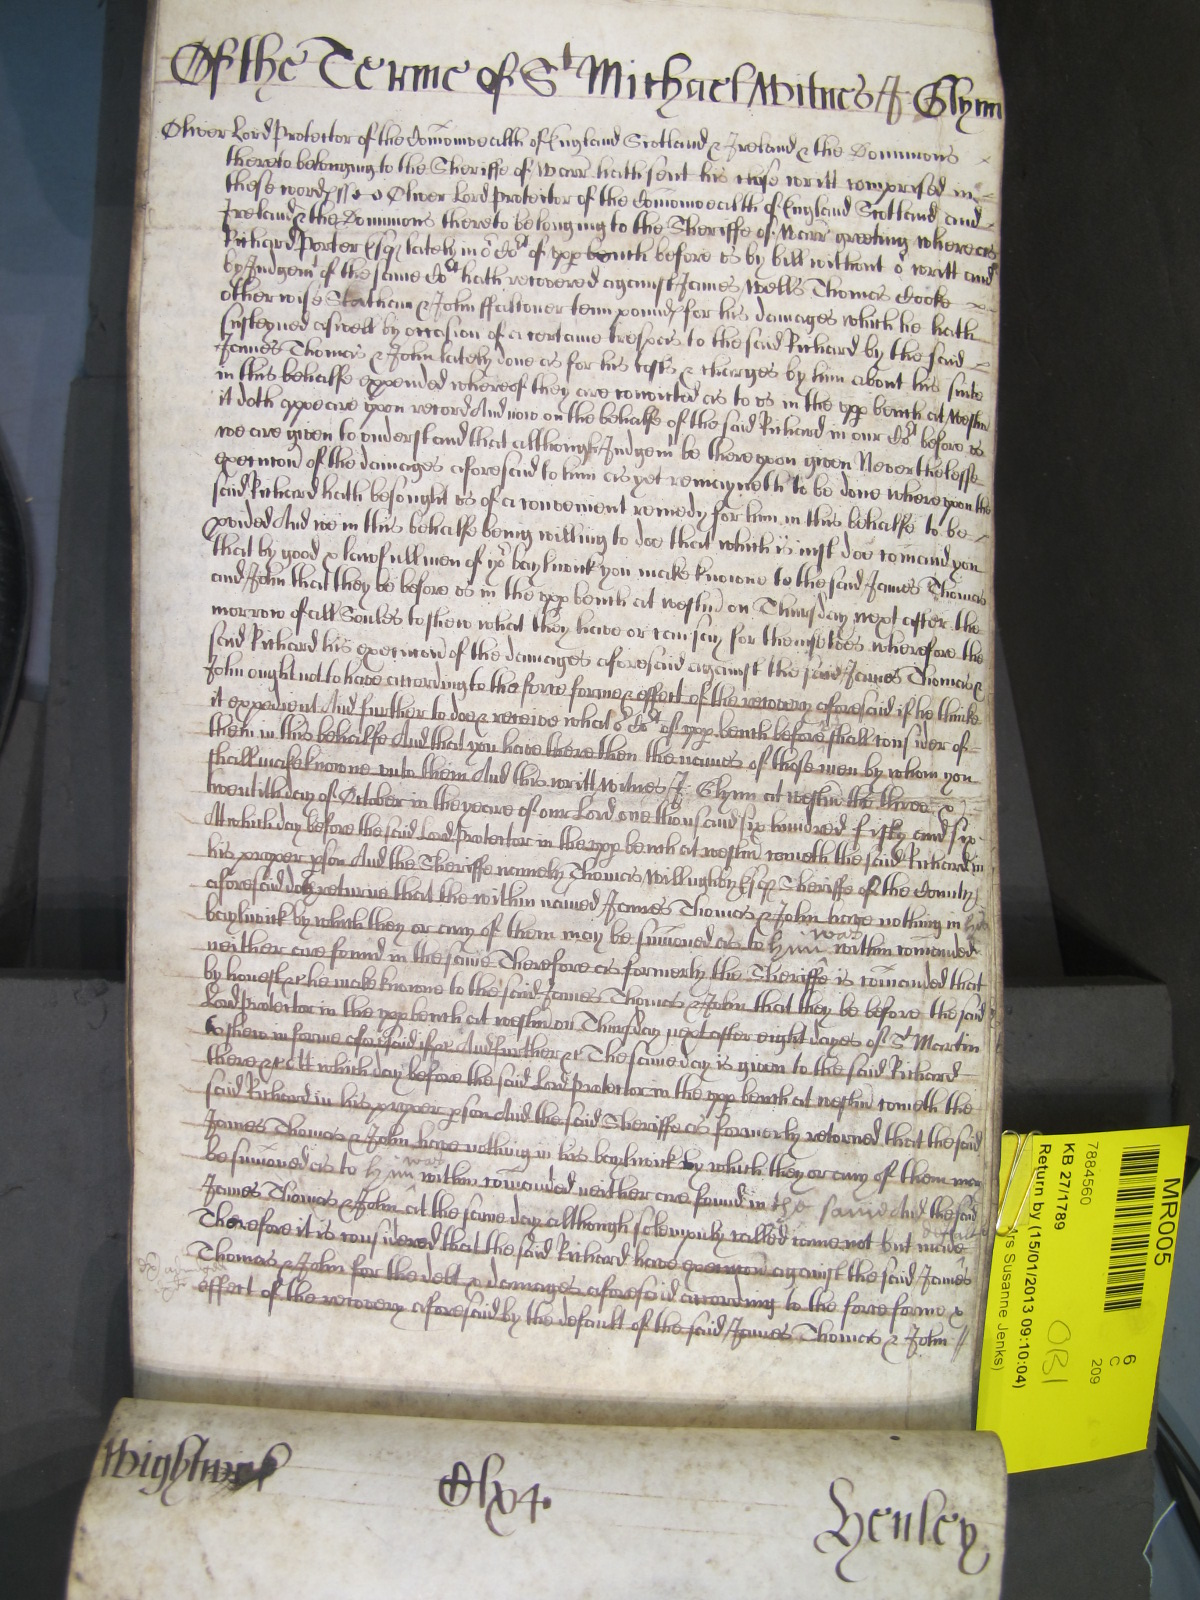 Of the Terme of St Michael Witnes J Glynn
Oliver Lord Protector of the Comonwealth of England Scotland & Ireland & the Dominions
thereto belonging to the Sheriffe of Warr hath sent his close writt comprised in
these words sst Oliver Lord Protector of the Comonwealth of England Scotland and
Ireland & the Dominions thereto belonging to the Sheriffe of Warr greeting whereas
Richard Porter Esq lately in or Cot of upp bench before us by bill without or writt and
by Judgemt of the same Cot hath recovered against James Wells Thomas Cooke
otherwise Statham & John ffalconer tenn pounds for his damages which he hath
susteyned aswell by occasion of a certaine trespas to the said Richard by the said
James Thomas & John lately done as for his costs & charges by him about his suite
in this behalfe expended whereof they are convicted as to us in the upp bench at Westm
it doth appeare upon record And now on the behalfe of the said Richard in our Cot before us
we are given to understand that although Judgemt be thereupon given Neverthelesse
execucon of the damages aforesaid to him as yet remayneth to be done whereupon the
said Richard hath besought us of a convenient remedy for him in this behalfe to be
pvided And we in this behalfe being willing to doe that which is just doe comaund you
that by good & lawfull men of yor bayliwick you make knowne to the said James Thomas
and John that they be before us in the upp bench at Westm on Thursday next after the
morrow of all Soules to shew what they have or can say for themselves wherefore the
said Richard his execucon of the damages aforesaid against the said James Thomas &
John ought not to have according to the force forme & effect of the recovery aforesaid if he thinke
it expedient And further to doe & receive what or Cot of upp bench before shall consider of
them in this behalfe And that you have there then the names of those men by whom you
shall make knowne unto them And this writt Witnes J Glynn at Westm the three &
twentith day of October in the yeare of our Lord one thousand six hundred fifty and six
At which day before the said Lord Protector in the upp bench at Westm cometh the said Richard in
his proper pson And the Sheriffe namely Thomas Willughby Esq Sheriffe of the County
aforesaid doth returne that the within named James Thomas & John have nothing in his
bayliwick by which they or any of them may be sumoned as to him was within comanded
neither are found in the same Therefore as formerly the Sheriffe is comanded that
by honest &c he make knowne to the said James Thomas & John that they be before the said
Lord Protector in the upp bench at Westm on Thursday next after eight dayes of St Martin
to shew in forme aforesaid if &c And further &c The same day is given to the said Richard
there &c Att which day before the said Lord Protector in the upp bench at Westm cometh the
said Richard in his proper pson And the said Sheriffe as formerly retorned that the said
James Thomas & John have nothing in his bayliwick by which they or any of them may
be sumoned as to him was within comanded neither are found in the same And the said
James Thomas & John at the same day although solempnly called came not but made default
Therefore it is considered that the said Richard have execucon against the said James
Thomas & John for the debt & damages aforesaid according to the force forme &
effect of the recovery aforesaid by the default of the said James Thomas & John
Wightwick
Henley
MR005
7884560
KB 27/1789
Return by (15/01/2013 09:10:04)
rs Susanne Jenks)
6
C
209
OB1